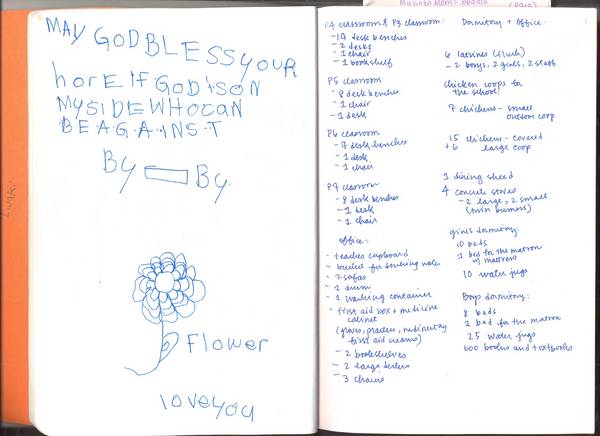 MAY GOD BLESS YOUR
hORE IF GOD IS ON
MY SIDE WHO CAN
BE AGAINS.T
By By.
Flower
love you
P4 classroom & P3 classroom:
- 19 desk benches
- 2 desks
- 1 chair
- 1 bookshelf
P5 classroom
- 8 desk benches
- 1 chair
- 1 desk
P6 classroom
- 7 desk benches
- 1 desk
- 1 chair
P7 classroom
- 8 desk benches
- 1 desk
- 1 chair
office:
- teachers cupboard
- bucket for drinking water
- 2 sofas
- 1 drum
- 1 washing container
- first aid box + medicine
cabinet
first aid creams)
- 2 bookshelves
- 2 large desks
- 3 chairs
Dormitory + Office:
6 latrines (flush)
- 2 boys, 2 girls, 2 staff
chicken coops for
the school:
7 chickens - small
coop
15 chickens - covered
+6 large coop
1 dining shed
4 concrete stoves
- 2 large, 2 small
(twin burners)
girls dormitory:
10 beds
1 bed for the matron
w/ mattress
10 water jugs
Boys dormitory:
8 beds
1 bed for the matron
25 water jugs
600 books and textbooks